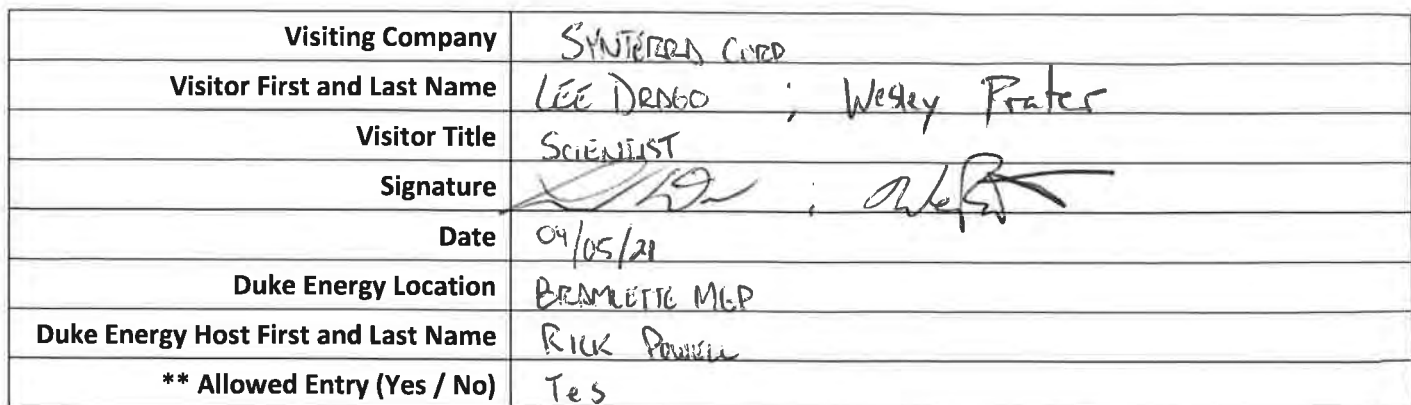 Visiting Company SYNTERRA CORP
Visitor First and Last Name LEE DRAGO ; Wesley Prater
Visitor Title SCIENTIST
Signature ;
Date 04/05/21
Duke Energy Location BRAMLETTE MGP
Duke Energy Host First and Last Name RICK POWELL
** Allowed Entry (Yes / No) Yes